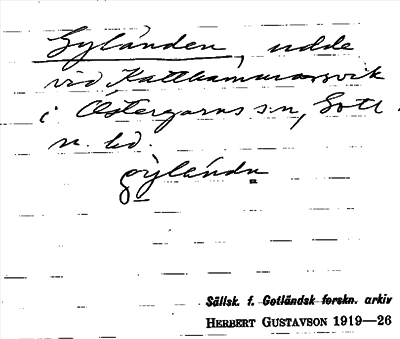 Gylånden, udde
vid Katthammarsvik
i Östergarns s:n, Gotl.
n. hd.
gỳlándn
Sällsk. f. Gotländsk forskn. arkiv
HERBERT GUSTAVSON 1919—26